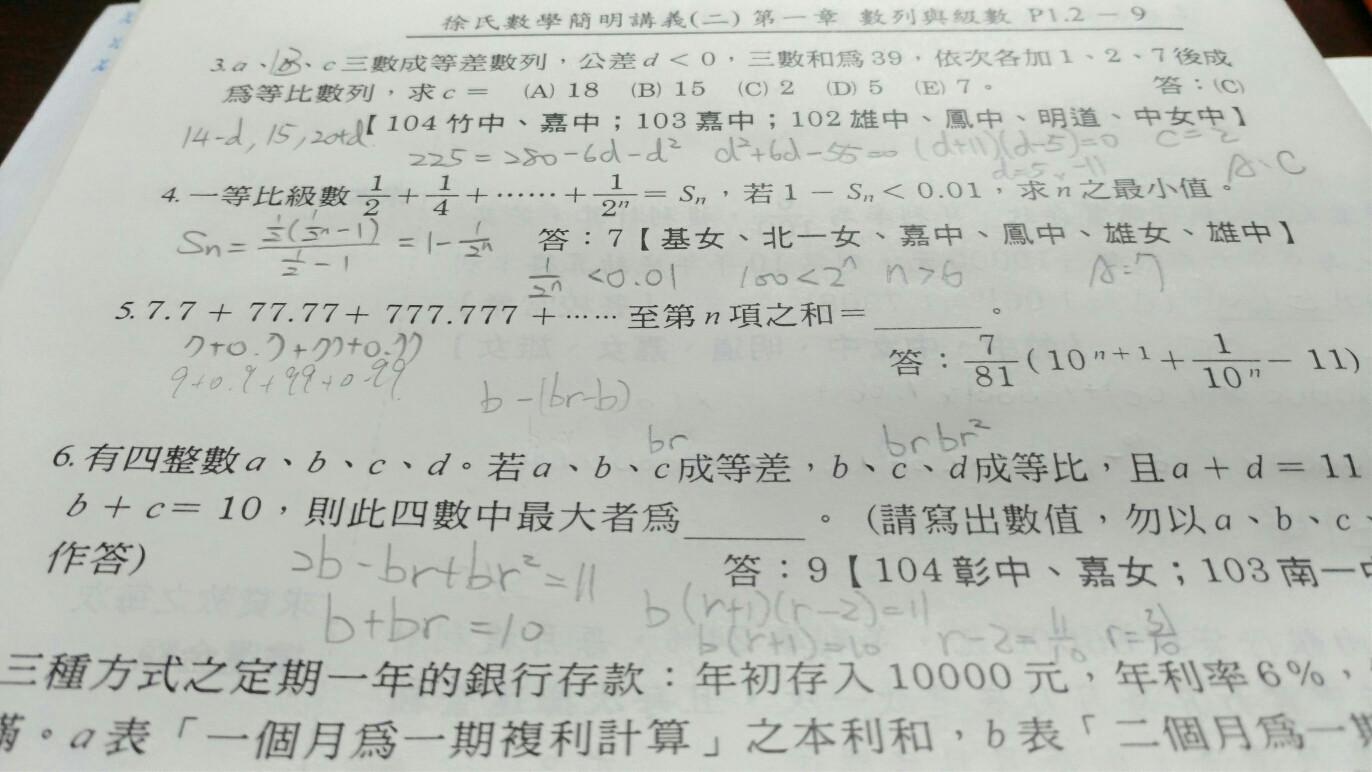 徐氏數學簡明講義(二) 第一章 數列與級數 P1.2 – 9
3. a、b、c 三數成等差數列，公差 d < 0，三數和爲 39，依次各加 1、2、7 後成
13
爲等比數列，求 c = (A) 18 (B) 15 (C) 2 (D) 5 (E) 7。 答：(C)
【104 竹中、嘉中；103 嘉中；102 雄中、鳳中、明道、中女中】
14-d, 15, 20+d
225 = 280-6d-d² d²+6d-55=0 (d+11)(d-5)=0 c=2
d=5, -11 A：C
4. 一等比級數 1/2 + 1/4 + …… + 1/2ⁿ = Sₙ，若 1 − Sₙ < 0.01，求 n 之最小值。
Sn = = 1 - 1/2ⁿ 答：7【基女、北一女、嘉中、鳳中、雄女、雄中】
1/2ⁿ < 0.01 100 < 2ⁿ n>6 A：7
5. 7.7 + 77.77 + 777.777 + …… 至第 n 項之和 = ______。
7+0.7+77+0.77
9+0.9+99+0.99
答：7/81 (10ⁿ⁺¹ + 1/10ⁿ − 11)
b-(br-b)
br br br²
6. 有四整數 a、b、c、d。若 a、b、c 成等差，b、c、d 成等比，且 a + d = 11
b + c = 10，則此四數中最大者爲______。(請寫出數值，勿以 a、b、c、
作答) 答：9【104 彰中、嘉女；103 南一中
2b-br+br²=11
b+br=10
b(r+1)(r-2)=11
b(r+1)=10 r-2=11/10 r=31/10
三種方式之定期一年的銀行存款：年初存入 10000 元，年利率 6%，
滿。a 表「一個月爲一期複利計算」之本利和，b 表「二個月爲一期